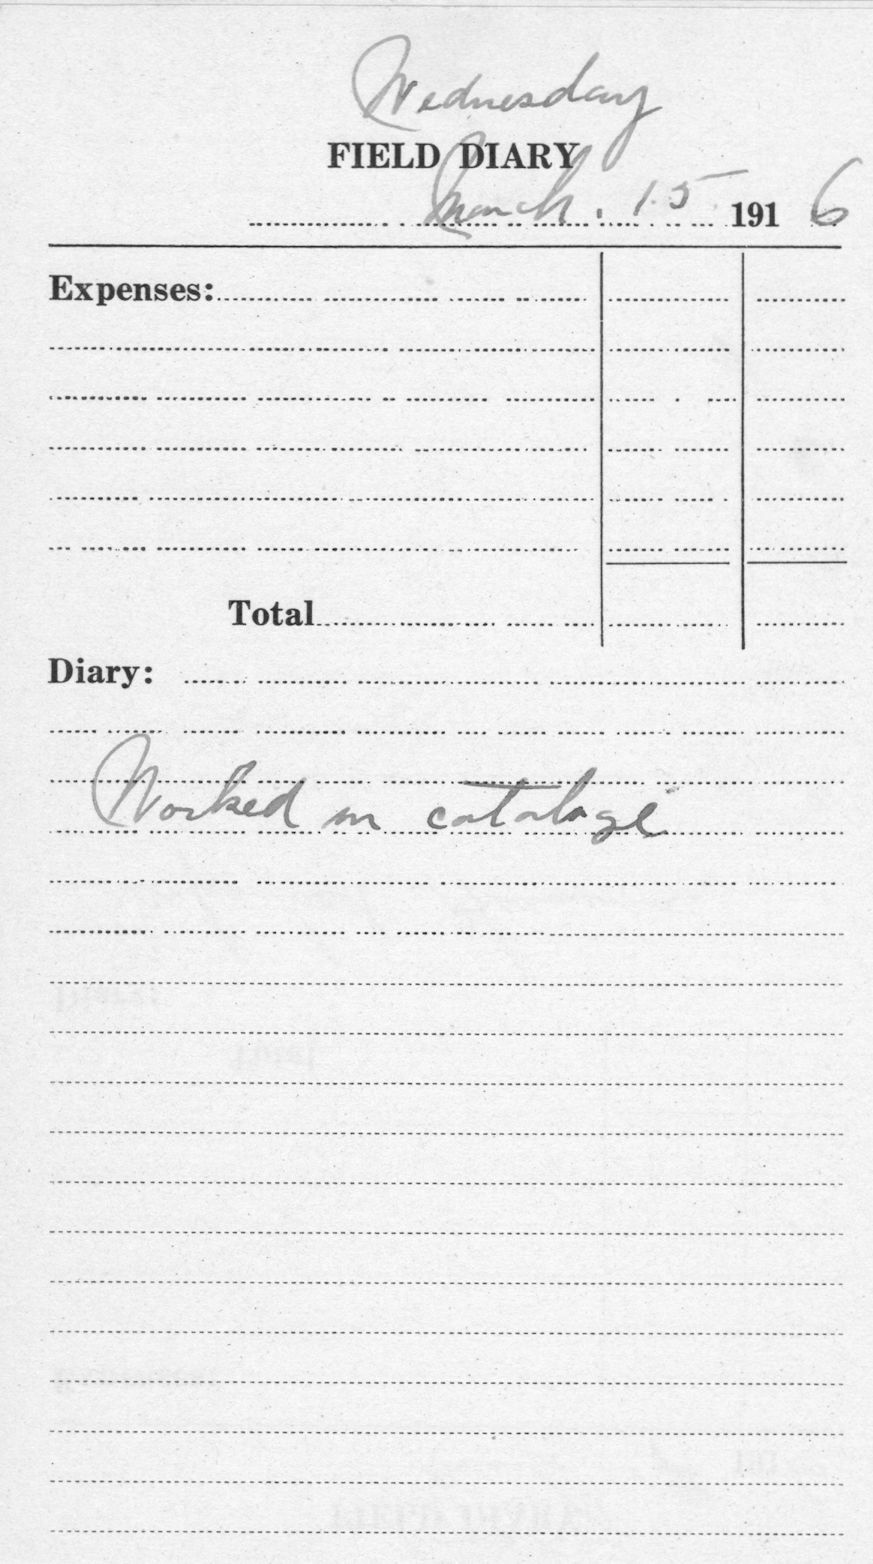 Wednesday
FIELD DIARY
March. 15 1916
Expenses:
Total
Diary:
Worked on cataloge